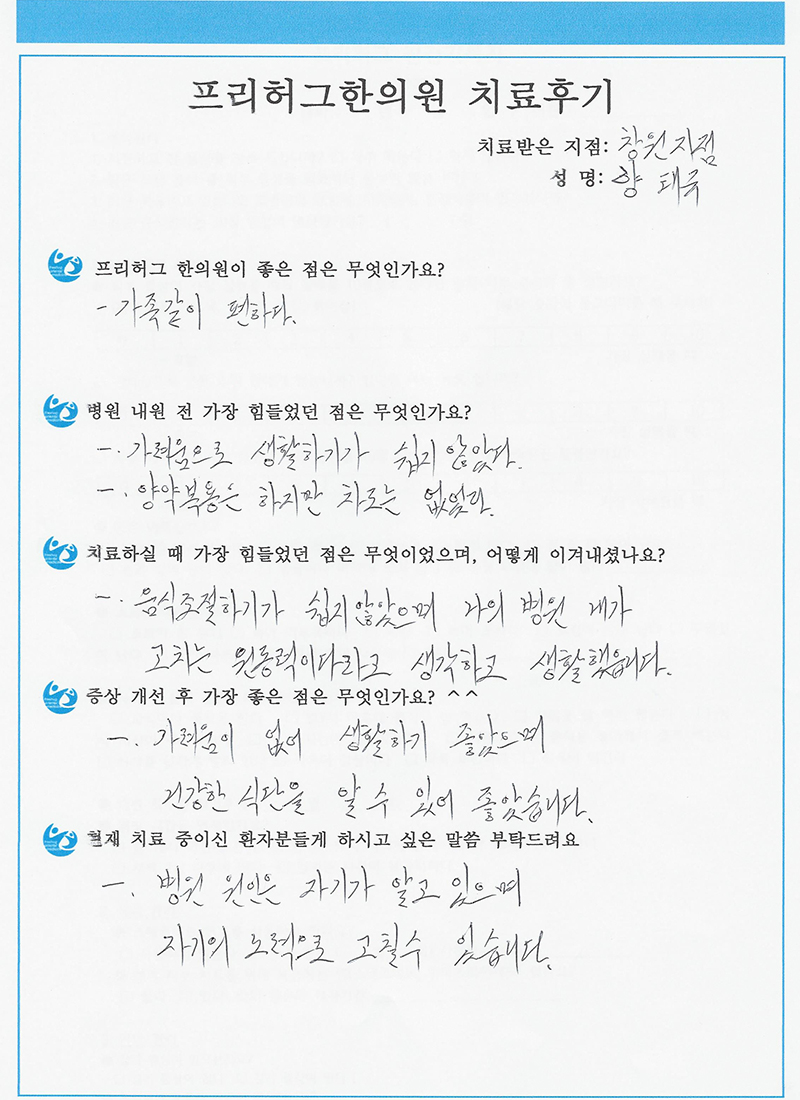 프리허그한의원 치료후기
치료받은 지점: 창원지점
성 명: 향 태국
프리허그 한의원이 좋은 점은 무엇인가요?
- 가족같이 편하다.
병원 내원 전 가장 힘들었던 점은 무엇인가요?
-. 가려움으로 생활하기가 쉽지않았다.
-. 양약복용은 하지만 차도는 없었다.
치료하실 때 가장 힘들었던 점은 무엇이었으며, 어떻게 이겨내셨나요?
-. 음식조절하기가 쉽지않았으며 나의 병원 내가
고치는 원동력이다라고 생각하고 생활했습니다.
증상 개선 후 가장 좋은 점은 무엇인가요? ^^
-. 가려움이 없어 생활하기 좋았으며
건강한 식단을 알 수 있어 좋았습니다.
현재 치료 중이신 환자분들게 하시고 싶은 말씀 부탁드려요
-. 병원 원인은 자기가 알고 있으며
자기의 노력으로 고칠수 있습니다.